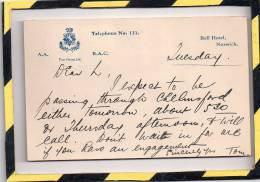 Telephone No. 131.
Bell Hotel,
Norwich.
A.A.
R.A.C.
Tuesday.
Dear L,
I expect to be
passing through Chelmsford
either tomorrow, about 5.30
or Thursday afternoon, & will
call. Don't wait in for me
if you have an engagement
Sincerely yrs Tom